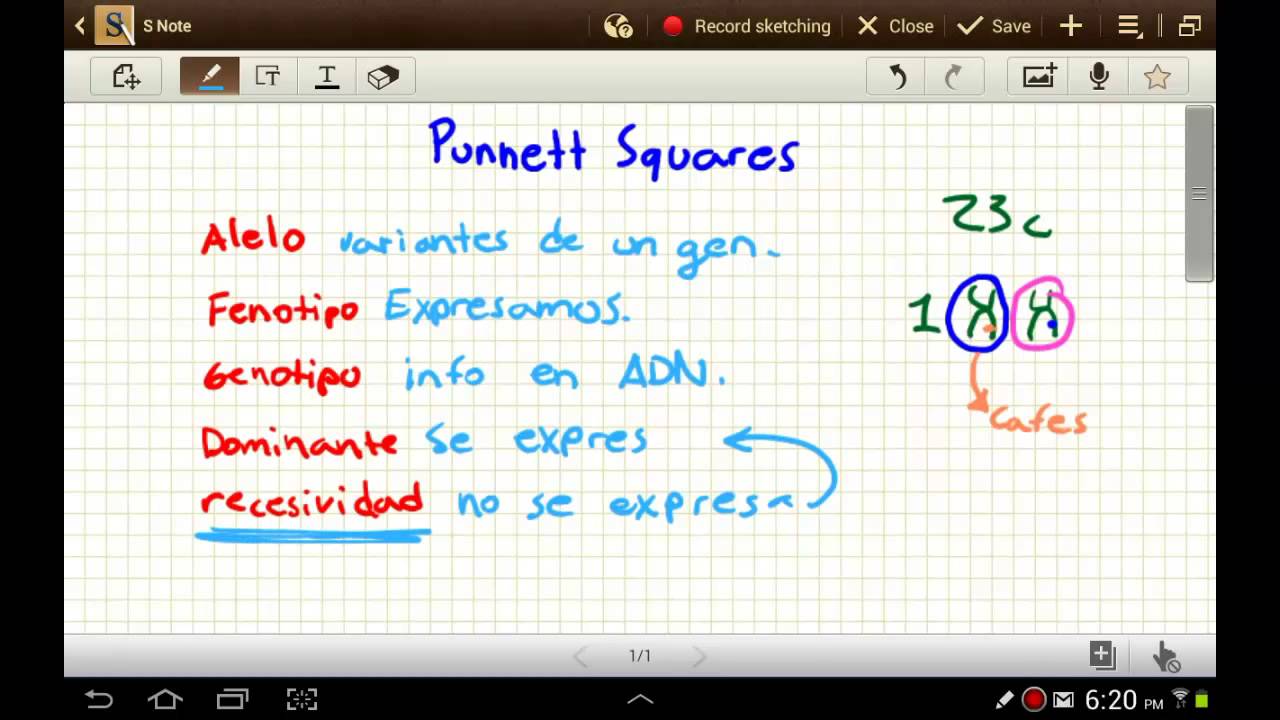 S Note
Record sketching
Close
Save
Punnett Squares
23 c
Alelo variantes de un gen.
Fenotipo Expresamos.
1
Genotipo info en ADN.
cafes
Dominante Se expres
recesividad no se expresa
1/1
6:20 PM